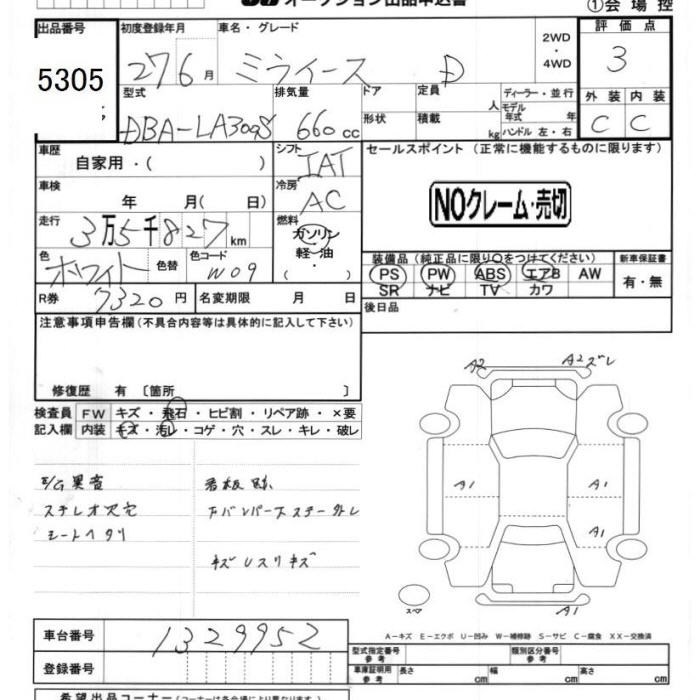 オークション出品申込書
①会場控
出品番号
5305
初度登録年月
27 6月
車名・グレード
ミライース D
2WD
・
4WD
評価点
3
外装 内装
C C
型式
DBA-LA300S
排気量
660cc
ドア
形状
定員 人
積載 kg
ディーラー・並行
モデル
年式 年
ハンドル 左・右
車歴
自家用・( )
シフト
IAT
セールスポイント (正常に機能するものに限ります)
NOクレーム・売切
車検
年 月( 日)
冷房
AC
走行
3万5千827km
燃料
ガソリン
軽油
( ・ )
色
ホワイト
色替
色コード
W09
装備品 (純正品に限り○をつけてください)
PS PW ABS エアB AW
SR ナビ TV カワ
新車保証書
有・無
R券 7320円
名変期限 月 日
後日品
注意事項申告欄 (不具合内容等は具体的に記入して下さい)
修復歴 有 〔箇所 〕
検査員
記入欄
FW キズ・飛石・ヒビ割・リペア跡・×要
内装 キズ・汚レ・コゲ・穴・スレ・キレ・破レ
E/G異音
ステレオ欠品
シートヘタリ
看板跡
下バンパー下ステー外レ
キズUスリキズ
A2
A2ズレ
A1
A1
A1
A1
スペア
A-キズ E-エクボ U-凹み W-補修跡 S-サビ C-腐食 XX-交換済
車台番号
1329952
登録番号
型式指定番号
参考
類別区分番号
参考
車庫証明用
参考
長さ cm
幅 cm
高さ cm
希望出品コーナー